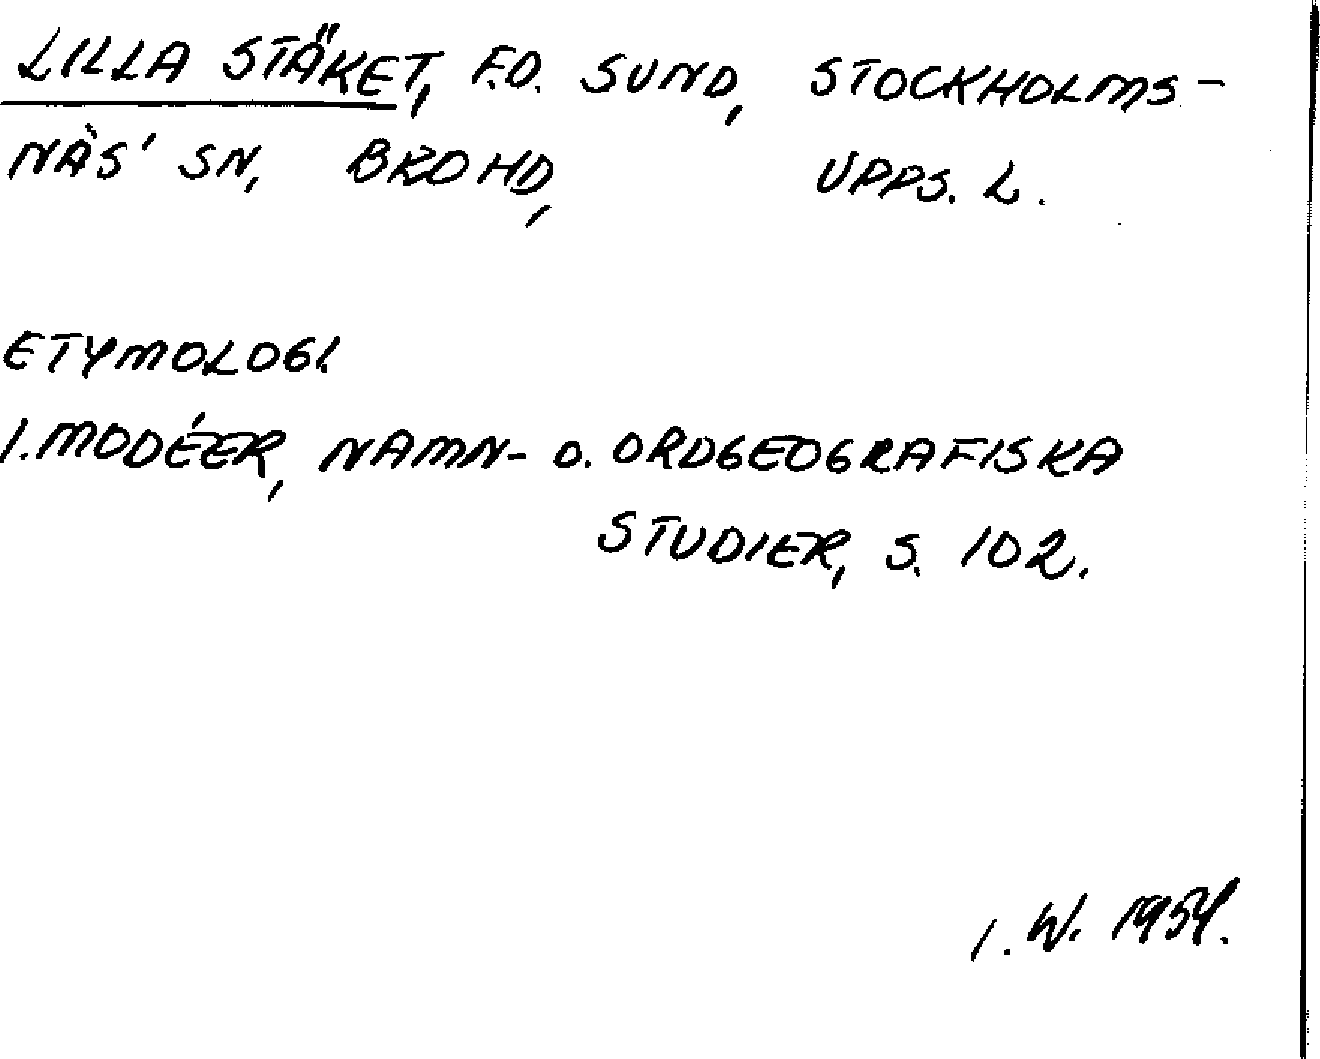 LILLA STÄKET, F.D. SUND, STOCKHOLMS-
NÄS' SN, BRO HD, UPPS. L.
ETYMOLOGI.
I. MODÉER, NAMN- O. ORDGEOGRAFISKA
STUDIER, S. 102.
I. W. 1954.